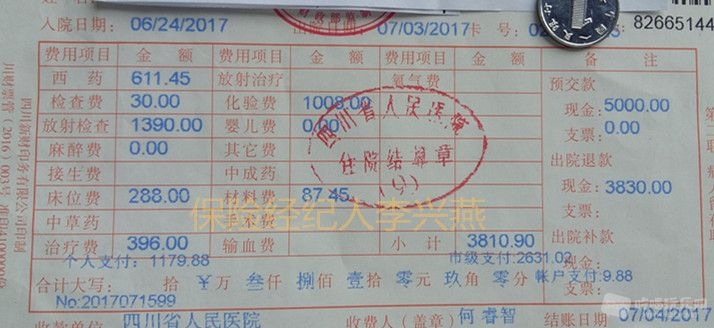 入院日期: 06/24/2017 出院日期: 07/03/2017 卡 号: 82665144
费用项目 金 额 费用项目 金 额 费用项目 金 额 备 注
西 药 611.45 放射治疗 氧气费 预交款
检查费 30.00 化验费 1008.00 现金: 5000.00
放射检查 1390.00 婴儿费 0.00 支票: 0.00
麻醉费 0.00 其它费 出院退款
接生费 中成药 现金: 3830.00
床位费 288.00 材料费 87.45 支票:
中草药 手术费 出院补款
治疗费 396.00 输血费 小 计 3810.90 现金:
个人支付: 1179.88 市级支付:2631.02 支票:
合计大写: 拾 ¥ 万 叁仟 捌佰 壹拾 零元 玖角 零分 帐户支付:9.88
No:2017071599
收款单位 四川省人民医院 收费人(盖章) 何睿智 结账日期 07/04/2017
四川省人民医院
住院结算章
保险经纪人李兴燕